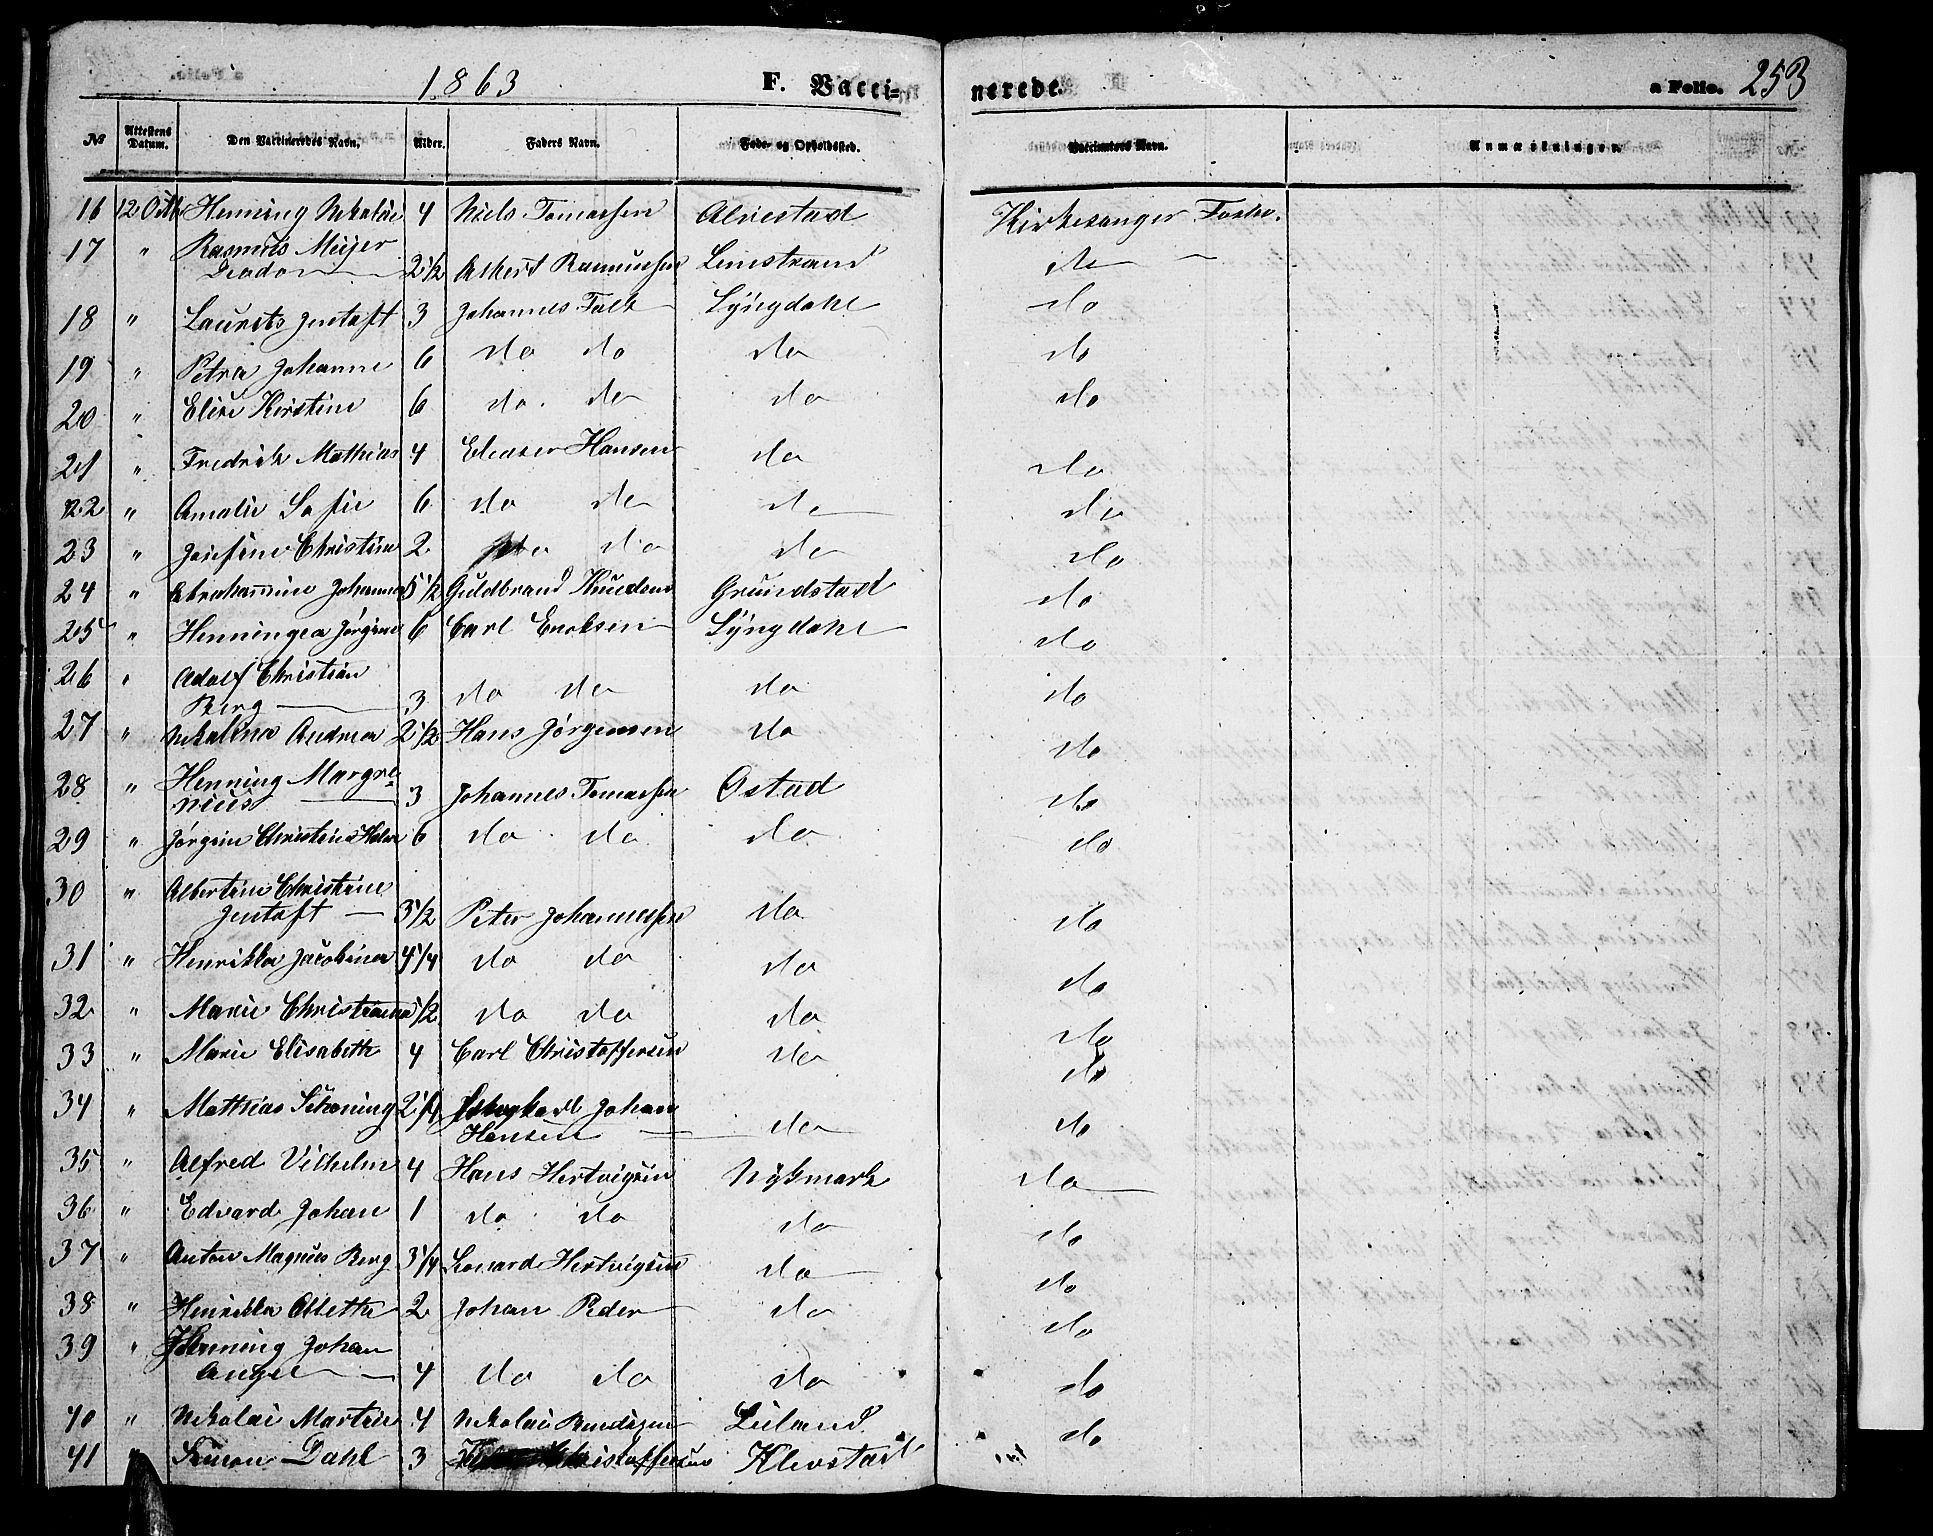 1863 F. Vacci= nerede. a Folio. 253
No Attestens Datum. Den Vaccineredes Navn. Alder. Faders Navn. Føde- og Opholdssted. Vaccinateurs Navn. Anmærkninger.
16 12 Octb Henning Nikolai 4 Niels Tomassen Alvestad Kirkesanger
17 " Rasmus Meijer
2 1/2 Albert Rasmussen Lenstrand do
18 " Laurits Jentoft 3 Johannes Falk Lÿngdahl do
19 " Petra Johanne 6 do do do do
20 " Elise Kirstine 6 do do do do
21 " Fredrik Mathias 4 Eleaser Hansen do do
22 " Amalie Sofie 6 do do do do
23 " Josefine Christine 2 do do do do
24 " Abrahamine Johanna 5 1/2 Guldbrand Knudsen Grundstad do
25 " Henningea Jørgine 6 Carl Enoksen Lÿngdahl do
26 " Adolf Christian
Berg 3 do do do do
27 " Nikolina Andrea 2 1/2 Hans Jørgensen do do
28 " Henning Margre=
nius 3 Johannes Tomassen Ostad do
29 " Jørgine Christine Helene 6 do do do do
30 " Albertine Christine
Jentoft 3 1/2 Peter Johannessen do do
31 " Henrikka Jacobina 4 1/4 do do do do
32 " Marie Christiana 1/2 do do do do
33 " Marie Elisabeth 4 Carl Christoffersen do do
34 " Mathias Schøning 2 1/4 Johan
Hansen do do
35 " Alfred Vilhelm 4 Hans Hertvigsen Nÿkmark do
36 " Edvard Johan 1 do do do do
37 " Anton Magnus Berg 3 1/4 Leonard Hertvigsen do do
38 " Henrikka Olletha 2 Johan Peder do do
39 " Henning Johan
Angel 4 do do do do
40 " Nikolai Martin 4 Nikolai Bendigsen Leiland do
41 " Simon Dahl 3 Christoffersen Klevstad